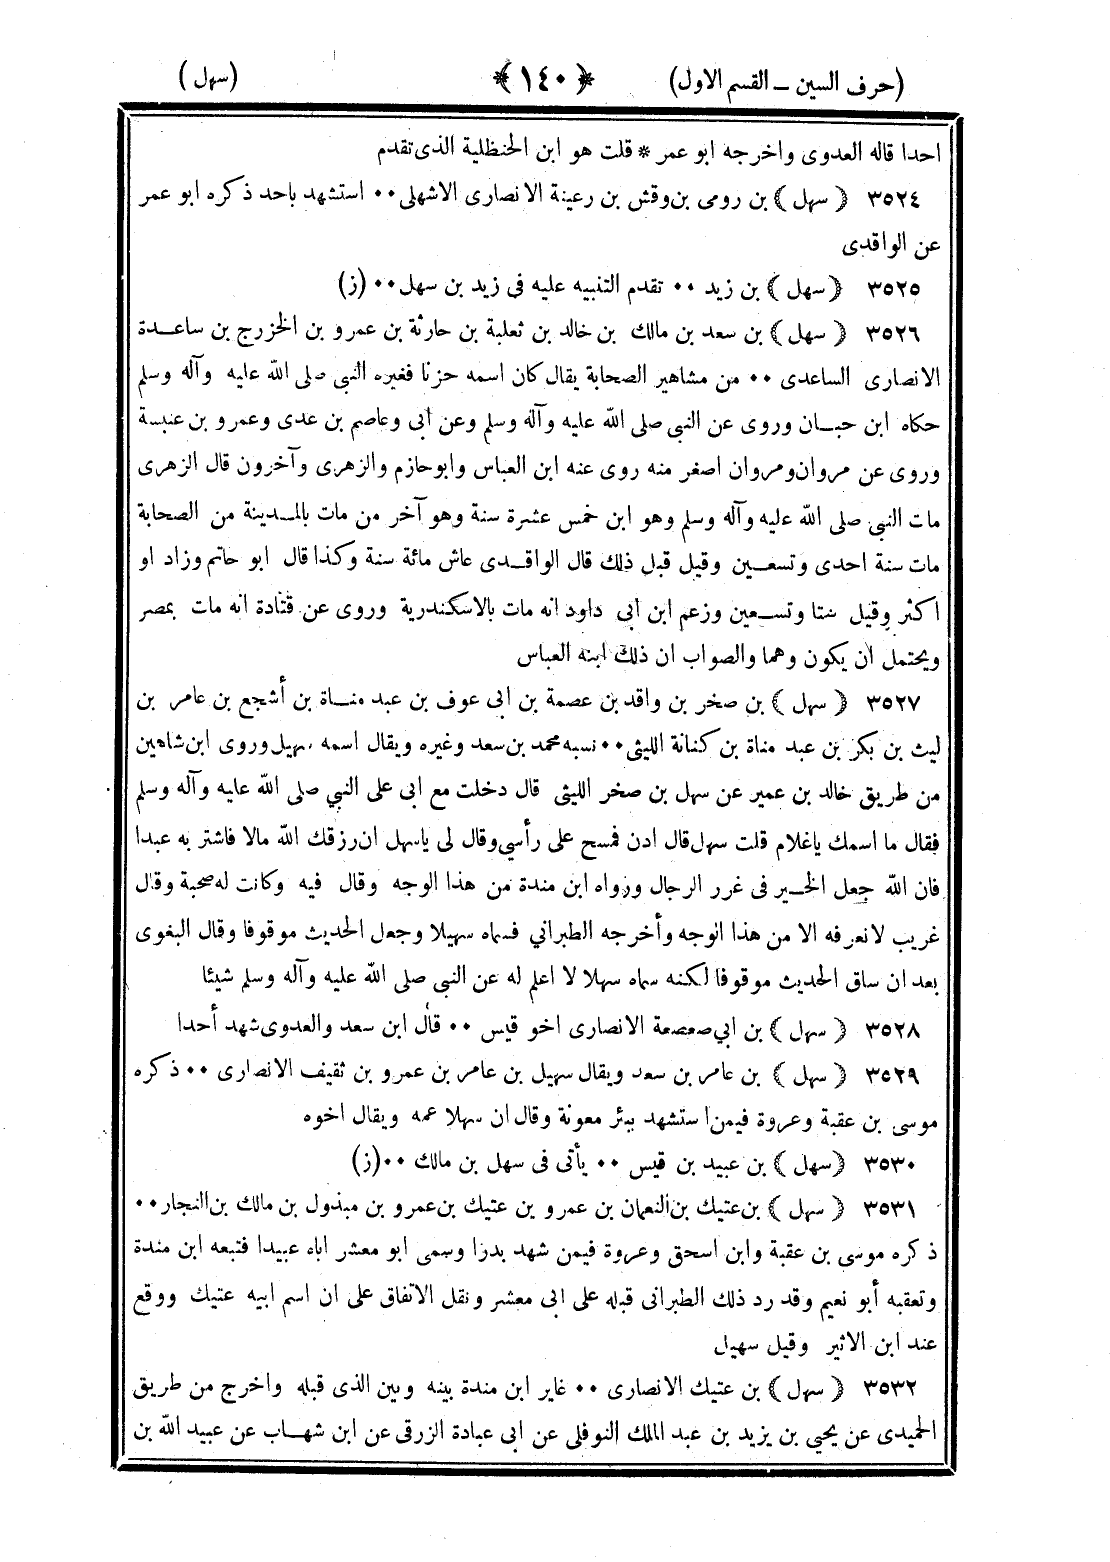 (حرف السين ــ القسم الاول) ﴿١٤٠﴾ (سهل)
احدا قاله العدوى واخرجه ابو عمر * قلت هو ابن الحنظلية الذى تقدم
٣٥٢٤ ﴿ سهل ﴾ بن رومى بن وقش بن رعينة الانصارى الاشهلى ٠٠ استشهد باحد ذكره ابو عمر
عن الواقدى
٣٥٢٥ ﴿ سهل ﴾ بن زيد ٠٠ تقدم التنبيه عليه فى زيد بن سهل ٠٠ (ز)
٣٥٢٦ ﴿ سهل ﴾ بن سعد بن مالك بن خالد بن ثعلبة بن حارثة بن عمرو بن الخزرج بن ساعدة
الانصارى الساعدى ٠٠ من مشاهير الصحابة يقال كان اسمه حزنا فغيره النبي صلى الله عليه وآله وسلم
حكاه ابن حبان وروى عن النبى صلى الله عليه وآله وسلم وعن أبى وعاصم بن عدى وعمرو بن عنبسة
وروى عن مروان ومروان اصغر منه روى عنه ابن العباس وابو حازم والزهرى وآخرون قال الزهرى
مات النبي صلى الله عليه وآله وسلم وهو ابن خمس عشرة سنة وهو آخر من مات بالمدينة من الصحابة
مات سنة احدى وتسعين وقيل قبل ذلك قال الواقدى عاش مائة سنة وكذا قال ابو حاتم وزاد او
اكثر وقيل ستا وتسعين وزعم ابن أبى داود انه مات بالاسكندرية وروى عن قتادة انه مات بمصر
ويحتمل أن يكون وهما والصواب ان ذلك ابنه العباس
٣٥٢٧ ﴿ سهل ﴾ بن صخر بن واقد بن عصمة بن ابى عوف بن عبد مناة بن أشجع بن عامر بن
ليث بن بكر بن عبد مناة بن كنانة الليثى ٠٠ نسبه محمد بن سعد وغيره ويقال اسمه سهيل وروى ابن شاهين
من طريق خالد بن عمير عن سهل بن صخر الليثى قال دخلت مع ابى على النبي صلى الله عليه وآله وسلم
فقال ما اسمك ياغلام قلت سهل قال ادن فمسح على رأسي وقال لى ياسهل ان رزقك الله مالا فاشتر به عبدا
فان الله جعل الخير فى غرر الرجال ورواه ابن مندة من هذا الوجه وقال فيه وكانت له صحبة وقال
غريب لا نعرفه الا من هذا الوجه وأخرجه الطبراني فسماه سهيلا وجعل الحديث موقوفا وقال البغوى
بعد ان ساق الحديث موقوفا لكنه سماه سهلا لا اعلم له عن النبي صلى الله عليه وآله وسلم شيئا
٣٥٢٨ ﴿ سهل ﴾ بن ابي صعصعة الانصارى اخو قيس ٠٠ قال ابن سعد والعدوى شهد أحدا
٣٥٢٩ ﴿ سهل ﴾ بن عامر بن سعد ويقال سهيل بن عامر بن عمرو بن ثقيف الانصارى ٠٠ ذكره
موسى بن عقبة وعروة فيمن استشهد ببئر معونة وقال ان سهلا عمه ويقال اخوه
٣٥٣٠ ﴿ سهل ﴾ بن عبيد بن قيس ٠٠ يأتى فى سهل بن مالك ٠٠ (ز)
٣٥٣١ ﴿ سهل ﴾ بن عتيك بن النعمان بن عمرو بن عتيك بن عمرو بن مبذول بن مالك بن النجار ٠٠
ذكره موسى بن عقبة وابن اسحق وعروة فيمن شهد بدرا وسمى ابو معشر اباه عبيدا فتبعه ابن مندة
وتعقبه أبو نعيم وقد رد ذلك الطبرانى قبله على ابى معشر ونقل الاتفاق على ان اسم ابيه عتيك ووقع
عند ابن الاثير وقيل سهيل
٣٥٣٢ ﴿ سهل ﴾ بن عتيك الانصارى ٠٠ غاير ابن مندة بينه وبين الذى قبله واخرج من طريق
الحميدى عن يحيي بن يزيد بن عبد الملك النوفلى عن ابى عبادة الزرقى عن ابن شهاب عن عبيد الله بن